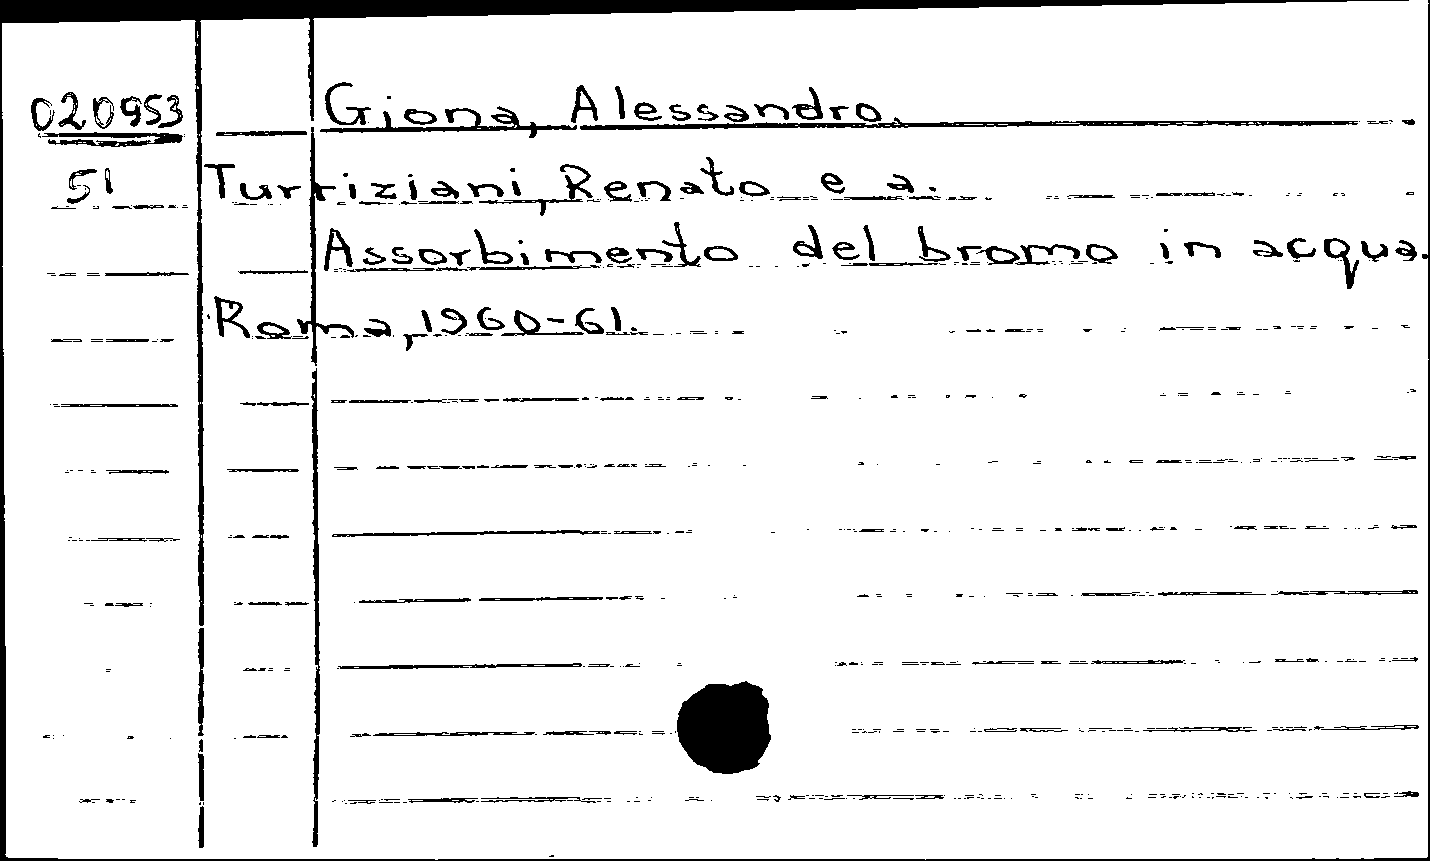 020953 Giona, Alessandro.
51 Turriziani, Renato e a.
Assorbimento del bromo in acqua.
Roma, 1960-61.